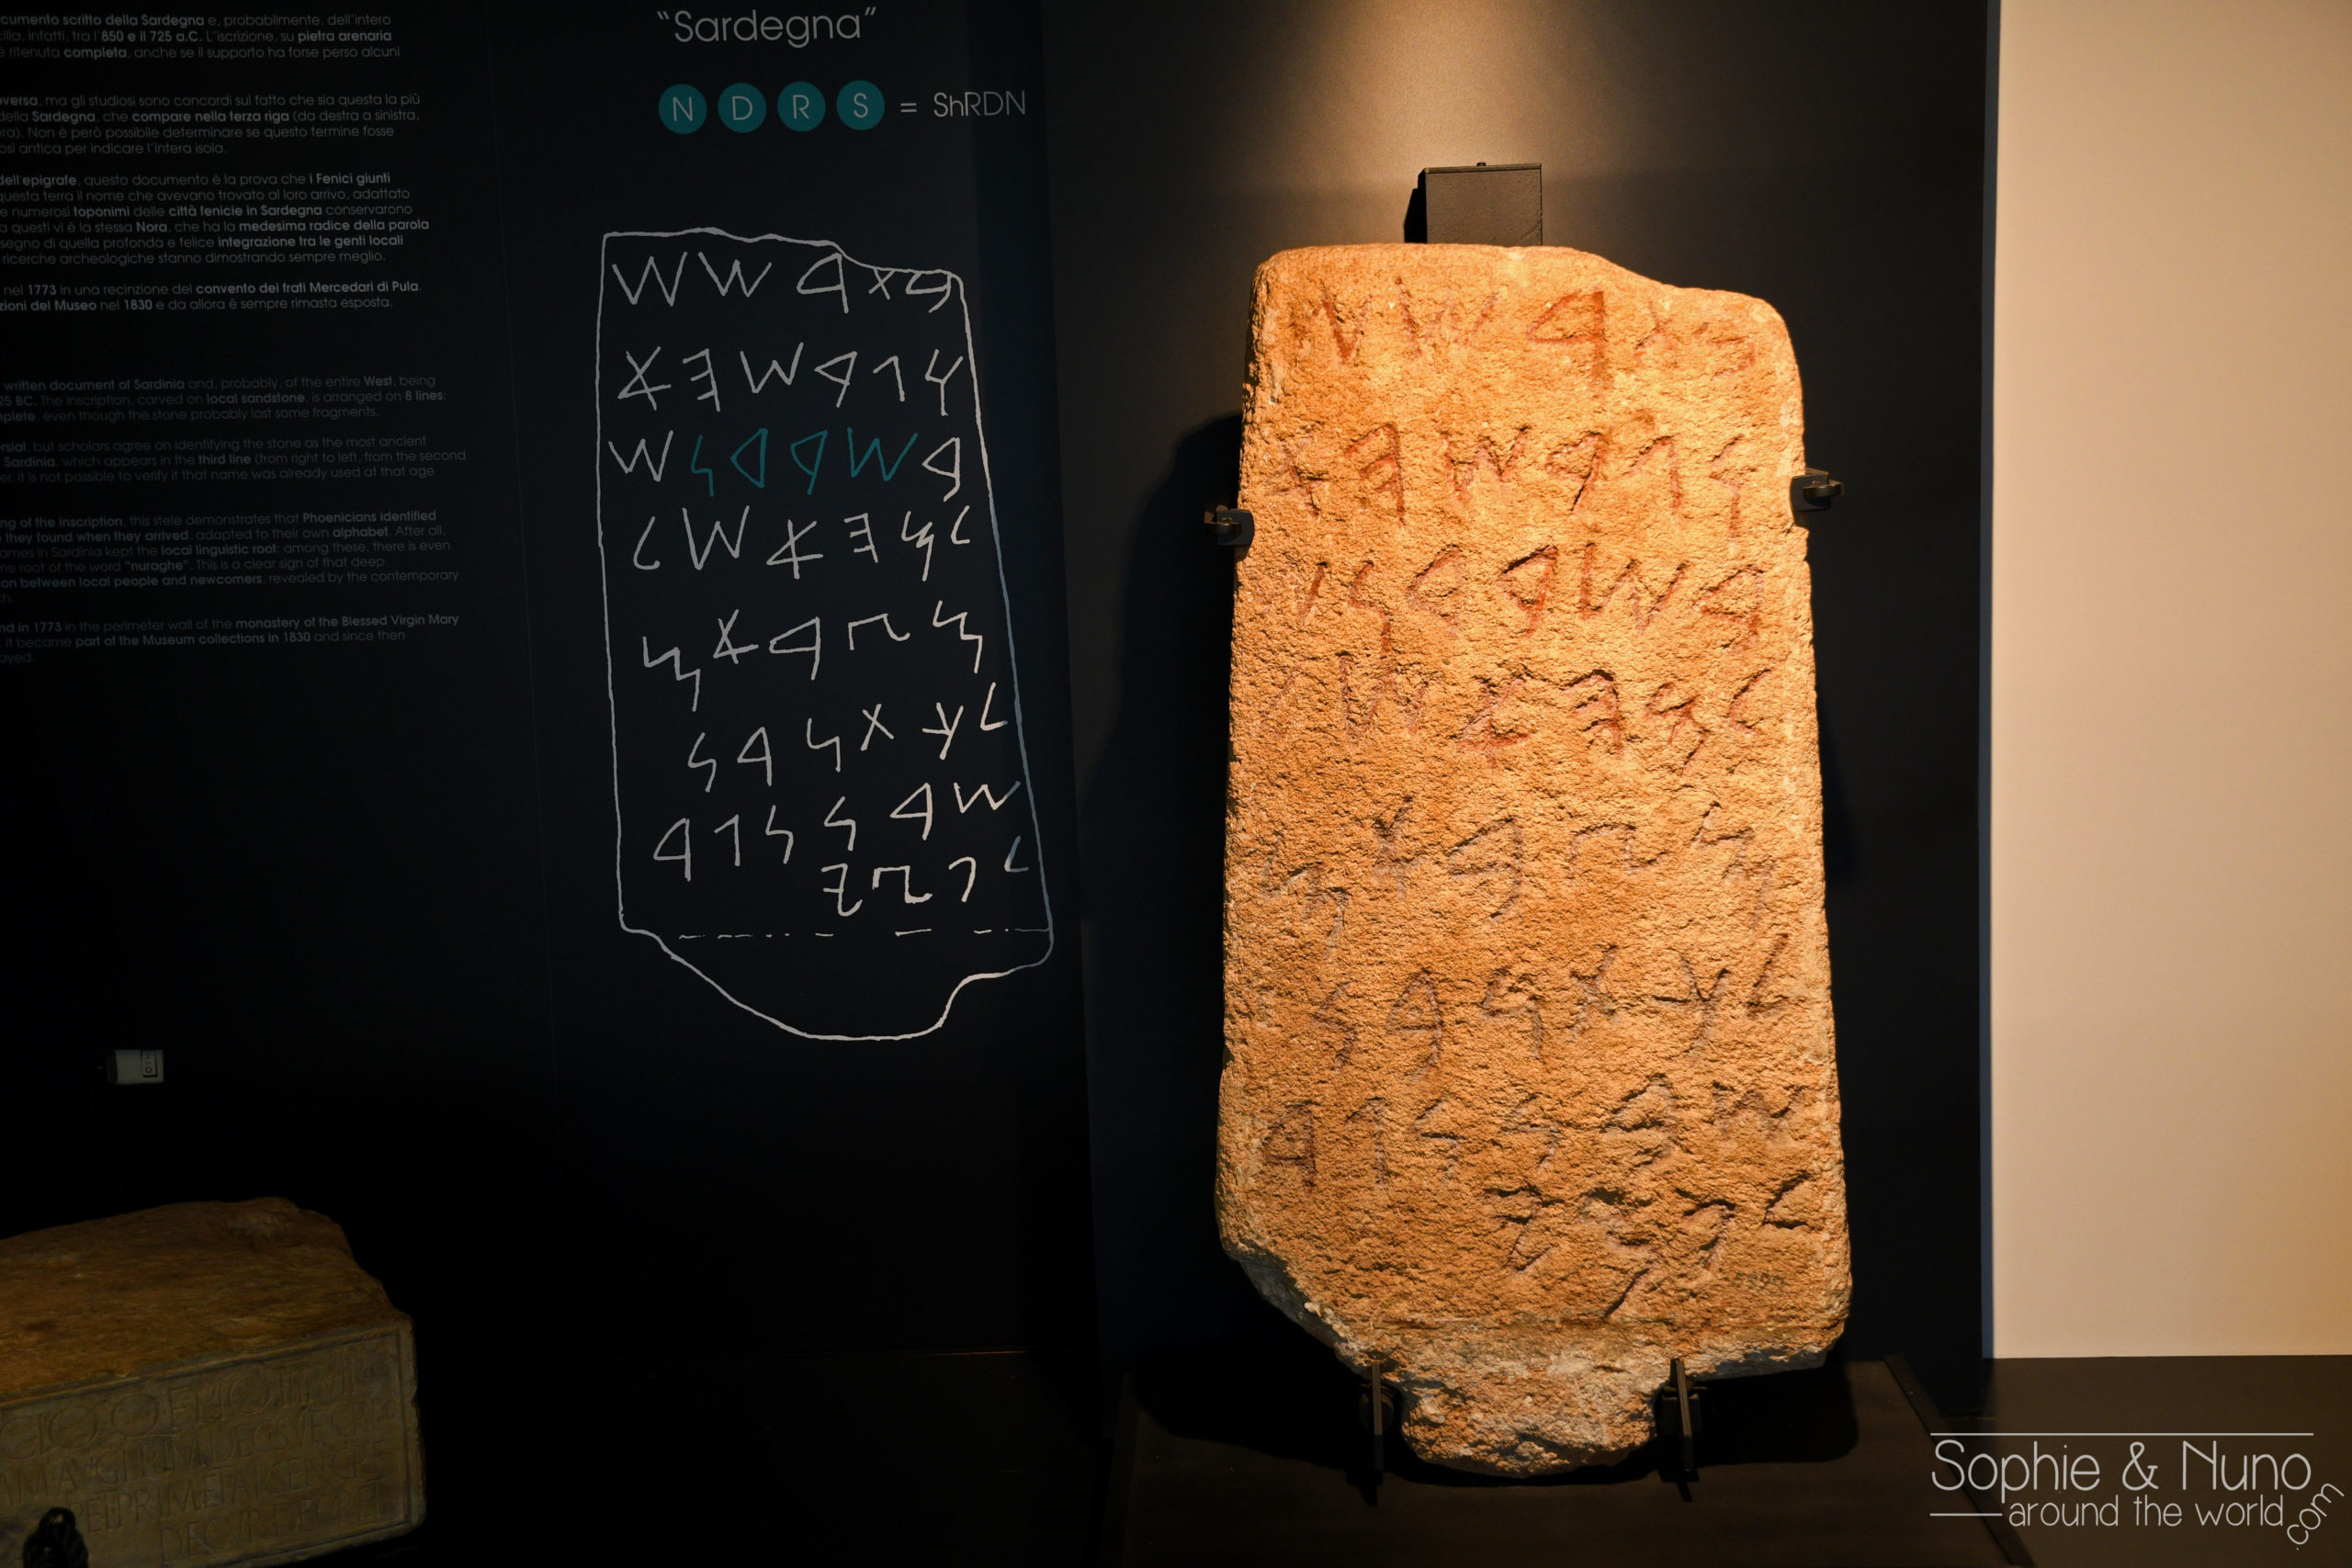 cumento scritto della Sardegna e, probabilmente, dell'intero
cilia, infatti, tra l'850 e il 725 a.C. L'iscrizione, su pietra arenaria
è ritenuta completa, anche se il supporto ha forse perso alcuni
versa, ma gli studiosi sono concordi sul fatto che sia questa la più
della Sardegna, che compare nella terza riga (da destra a sinistra,
ra). Non è però possibile determinare se questo termine fosse
osì antica per indicare l'intera isola.
dell'epigrafe, questo documento è la prova che i Fenici giunti
questa terra il nome che avevano trovato al loro arrivo, adattato
e numerosi toponimi delle città fenicie in Sardegna conservarono
a questi vi è la stessa Nora, che ha la medesima radice della parola
segno di quella profonda e felice integrazione tra le genti locali
ricerche archeologiche stanno dimostrando sempre meglio.
nel 1773 in una recinzione del convento dei frati Mercedari di Pula.
zioni del Museo nel 1830 e da allora è sempre rimasta esposta.
written document of Sardinia and, probably, of the entire West, being
25 BC. The inscription, carved on local sandstone, is arranged on 8 lines;
mplete, even though the stone probably lost some fragments.
rsial, but scholars agree on identifying the stone as the most ancient
Sardinia, which appears in the third line (from right to left, from the second
er, it is not possible to verify if that name was already used at that age
ng of the inscription, this stele demonstrates that Phoenicians identified
they found when they arrived, adapted to their own alphabet. After all,
ames in Sardinia kept the local linguistic root: among these, there is even
me root of the word "nuraghe". This is a clear sign of that deep
on between local people and newcomers, revealed by the contemporary
ch.
nd in 1773 in the perimeter wall of the monastery of the Blessed Virgin Mary
. It became part of the Museum collections in 1830 and since then
ayed.
"Sardegna"
N D R S = ShRDN
𐤁𐤕𐤓𐤔𐤔
𐤅𐤂𐤓𐤔𐤄𐤀
𐤁𐤔𐤓𐤃𐤍𐤔
𐤋𐤌𐤄𐤀𐤔𐤋
𐤌𐤑𐤁𐤀𐤌
𐤋𐤊𐤕𐤍𐤁𐤍
𐤔𐤁𐤍𐤍𐤂𐤃
𐤋𐤐𐤌𐤉
𐤁𐤕𐤓𐤔𐤔
𐤅𐤂𐤓𐤔𐤄𐤀
𐤁𐤔𐤓𐤃𐤍𐤔
𐤋𐤌𐤄𐤀𐤔𐤋
𐤌𐤑𐤁𐤀𐤌
𐤋𐤊𐤕𐤍𐤁𐤍
𐤔𐤁𐤍𐤍𐤂𐤃
𐤋𐤐𐤌𐤉
Sophie & Nuno
around the world
.com